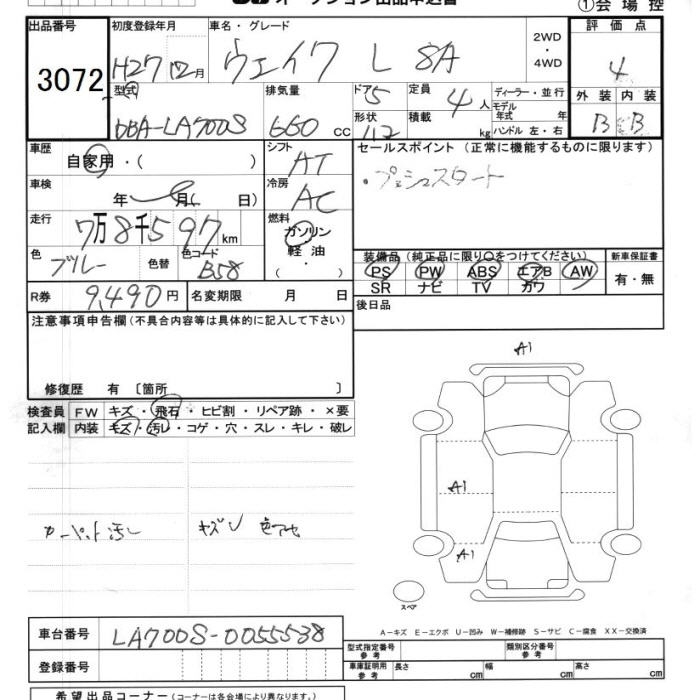 オークション出品申込書
①会場控
出品番号 初度登録年月 車名・グレード 2WD ・ 4WD 評価点
3072 H27 12月 ウェイク L SA 4
型式 排気量 ドア 5 定員 4人 ディーラー・並行 外装 内装
DBA-LA700S 660cc 形状 積載 kg モデル年式 年 ハンドル 左・右 B B
車歴 シフト セールスポイント (正常に機能するものに限ります)
自家用・( ) AT ・プッシュスタート
車検 年 月( 日) 冷房 AC
走行 7万8千597km 燃料 ガソリン・軽油・( )
色 ブルー 色替 色コード B58
装備品(純正品に限り○をつけてください) 新車保証書
PS PW ABS エアB AW 有・無
SR ナビ TV カワ
R券 9,490円 名変期限 月 日 後日品
注意事項申告欄(不具合内容等は具体的に記入して下さい)
修復歴 有 〔箇所 〕
検査員 FW キズ・飛石・ヒビ割・リペア跡・×要
記入欄 内装 キズ・汚レ・コゲ・穴・スレ・キレ・破レ
A1
A1
カーペット汚レ キズU 色アセ
A1
スペア
A-キズ E-エクボ U-凹み W-補修跡 S-サビ C-腐食 XX-交換済
車台番号 LA700S-0055538
型式指定番号 参考 類別区分番号 参考
登録番号 車庫証明用 参考 長さ cm 幅 cm 高さ cm
希望出品コーナー(コーナーは各会場により異なります。)